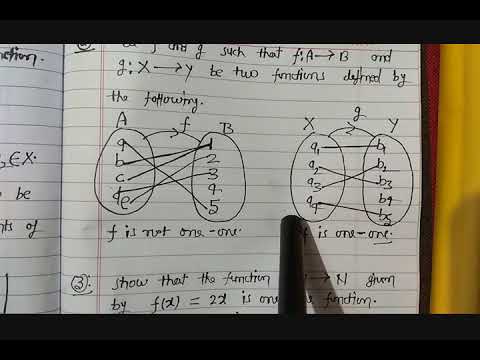 f and g such that f:A→B and
g:X→Y be two functions defined by
the following.
A f B
a 1
b 2
c 3
d 4
e 5
X g Y
a1 b1
a2 b2
a3 b3
a4 b4
b5
f is not one-one.
is one-one.
ction.
∈X.
be
nts of
③. show that the function → N given
by f(x) = 2x is one function.